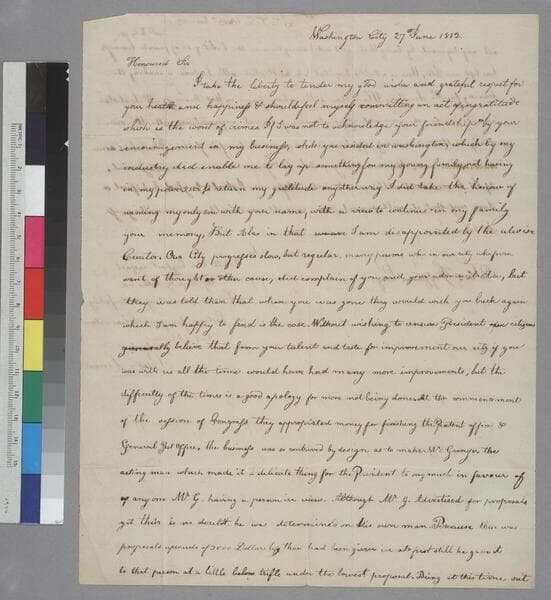 Washington City 27th June 1812.
Honoured Sir
I take the liberty to tender my good wishes and grateful respect for
your health and happiness & should feel myself committing an act of ingratitude
which is the worst of crimes If I was not to acknowledge your friendship by your
encouragement in my business, while you resided in Washington, which by my
industry did enable me to lay up something for my young family, not having
in my power to return my gratitude any other way I did take the honour of
naming my only son with your name, with a view to continue in my family
your memory, But Alas in that I am disappointed by the alwise
Creator. Our City progresses slow, but regular, many persons who in our city who from
want of thought or other cause, did complain of you and your administration, but
they was told then that when you was gone they would wish you back again
which I am happy to find is the case. Without wishing to censure President our citizens
generally believe that from your talent and taste for improvement our city if you
was with us all the time would have had many more improvements, but the
difficulty of the times is a good apology for more not being done. At the commencement
of the session of Congress they appropriated money for finishing the Patent office &
General Post Office, the business was so contrived by design, as to make Mr Granger the
acting man which made it a delicate thing for the President to say much in favour of
any one Mr G. having a person in view. Although Mr G. Advertised for proposals
yet their is no doubt he was determined on his own man. Because there was
proposals upwards of 2000 Dollars less than had been given in at first still he gave it
to that person at a little below trifle under the lowest proposal. Being at this time out